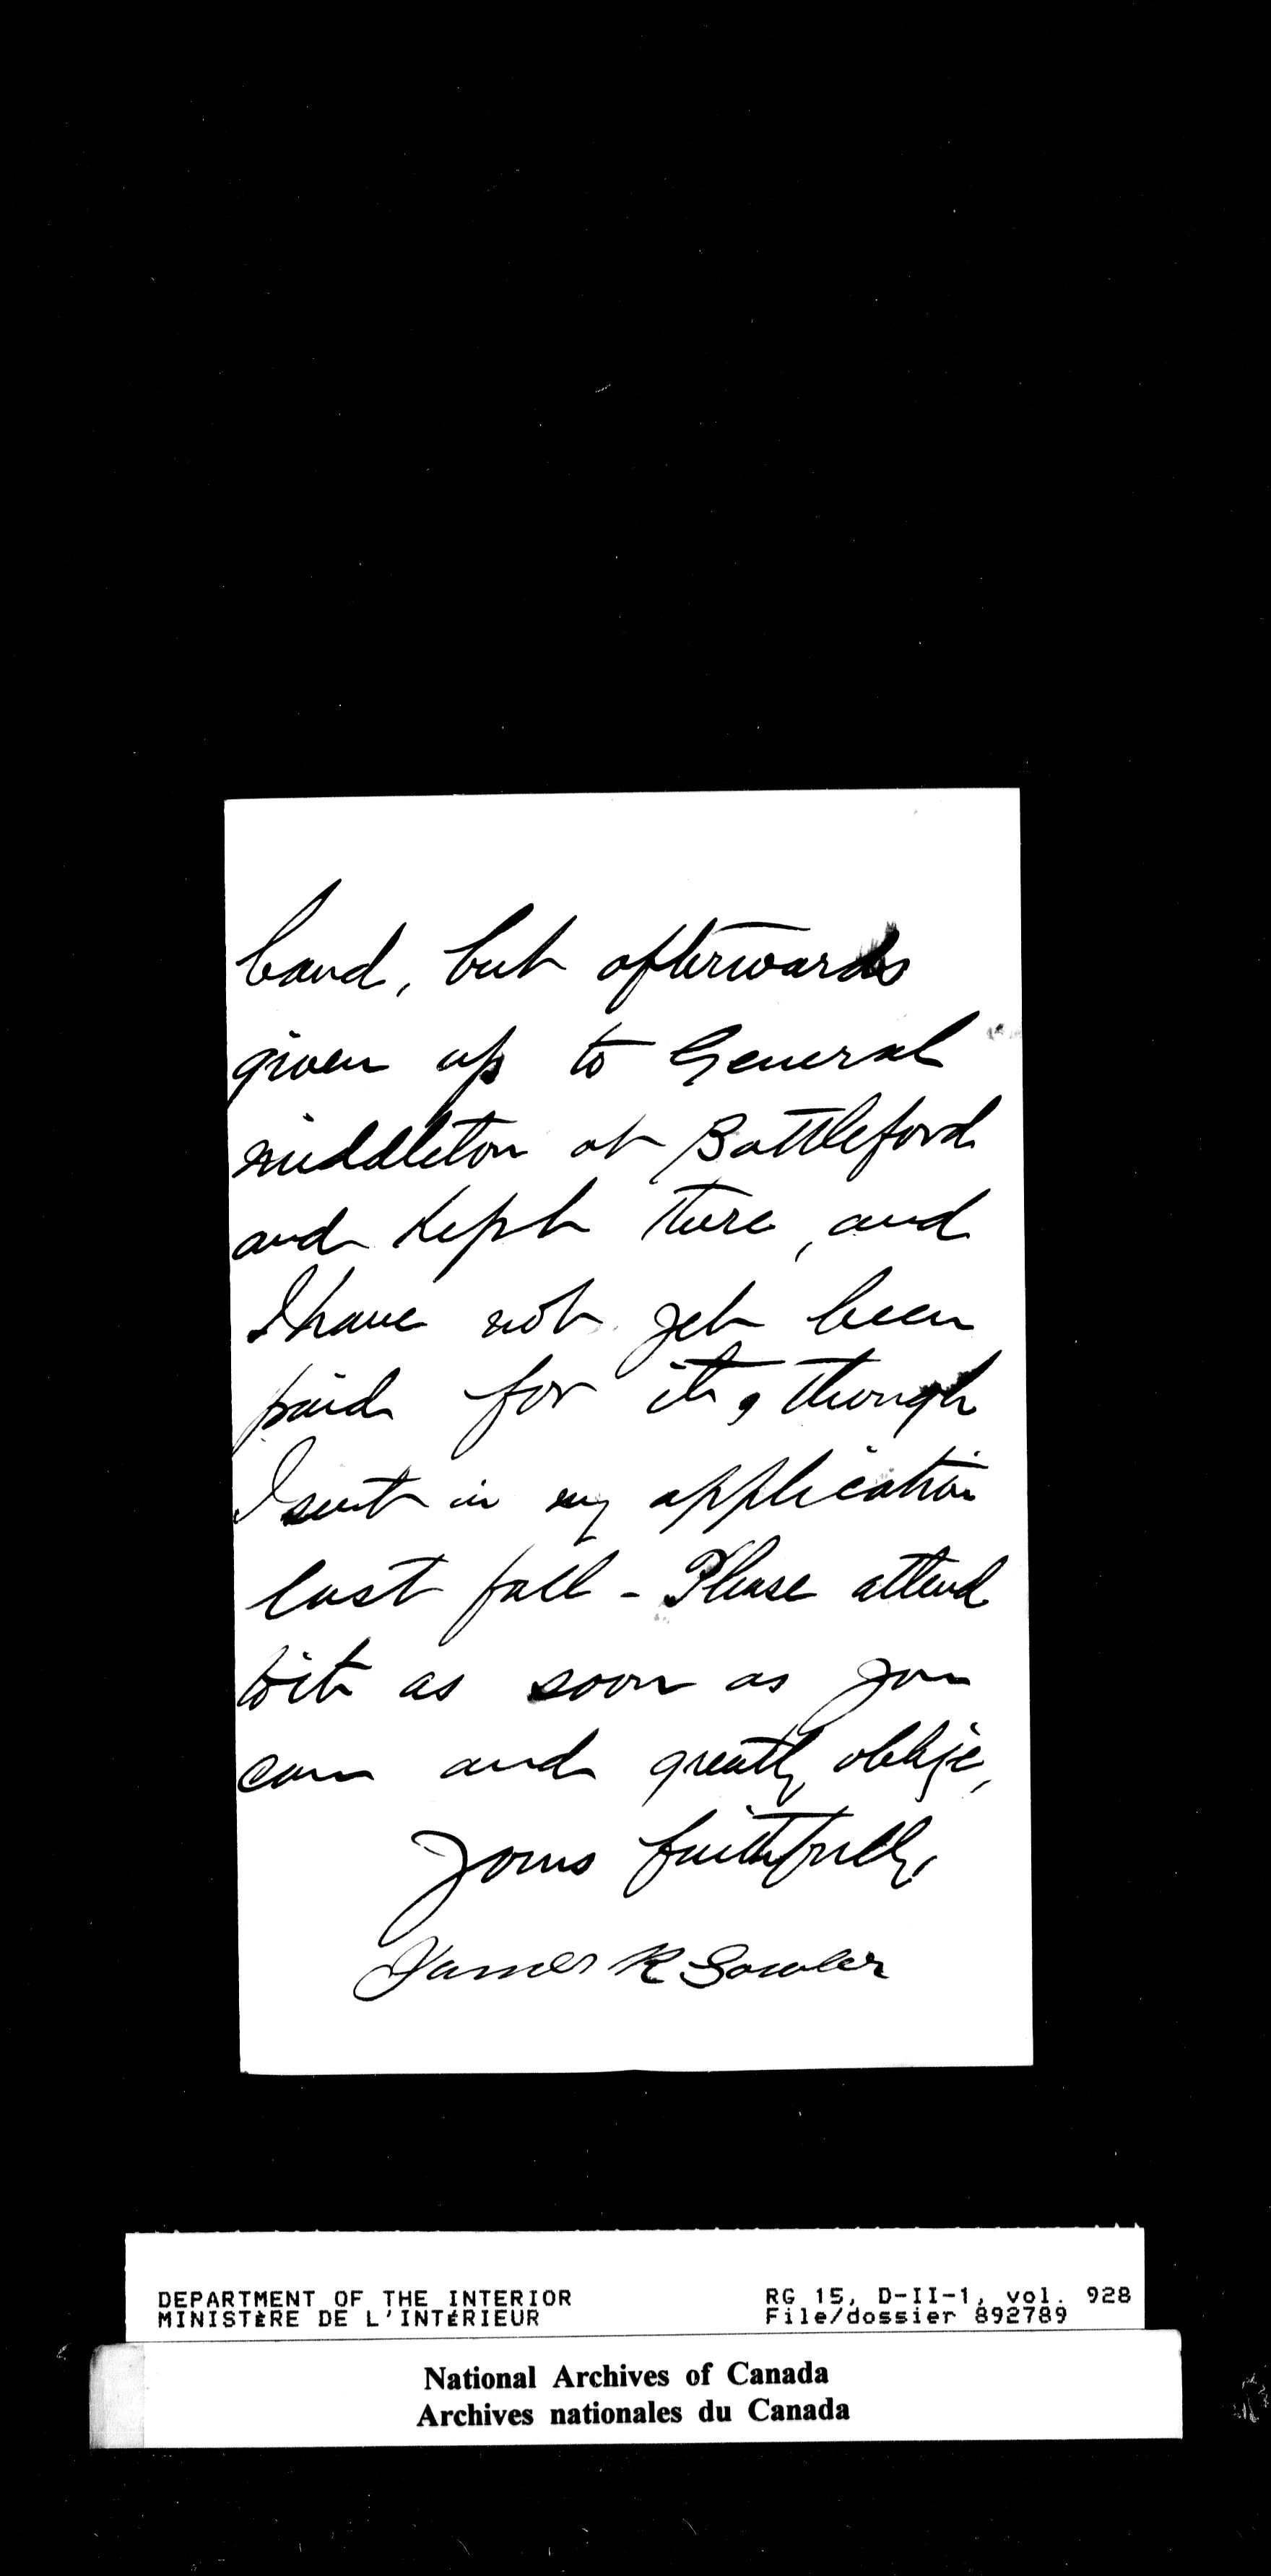 band, but afterwards
given up to General
middleton at Battleford
and kept there, and
I have not yet been
paid for it, though
I sent in my application
last fall - Please attend
to it as soon as you
can and greatly oblige,
Yours faithfully,
James R Sowler
DEPARTMENT OF THE INTERIOR RG 15, D-II-1, vol. 928
MINISTÈRE DE L'INTÉRIEUR File/dossier 892789
National Archives of Canada
Archives nationales du Canada